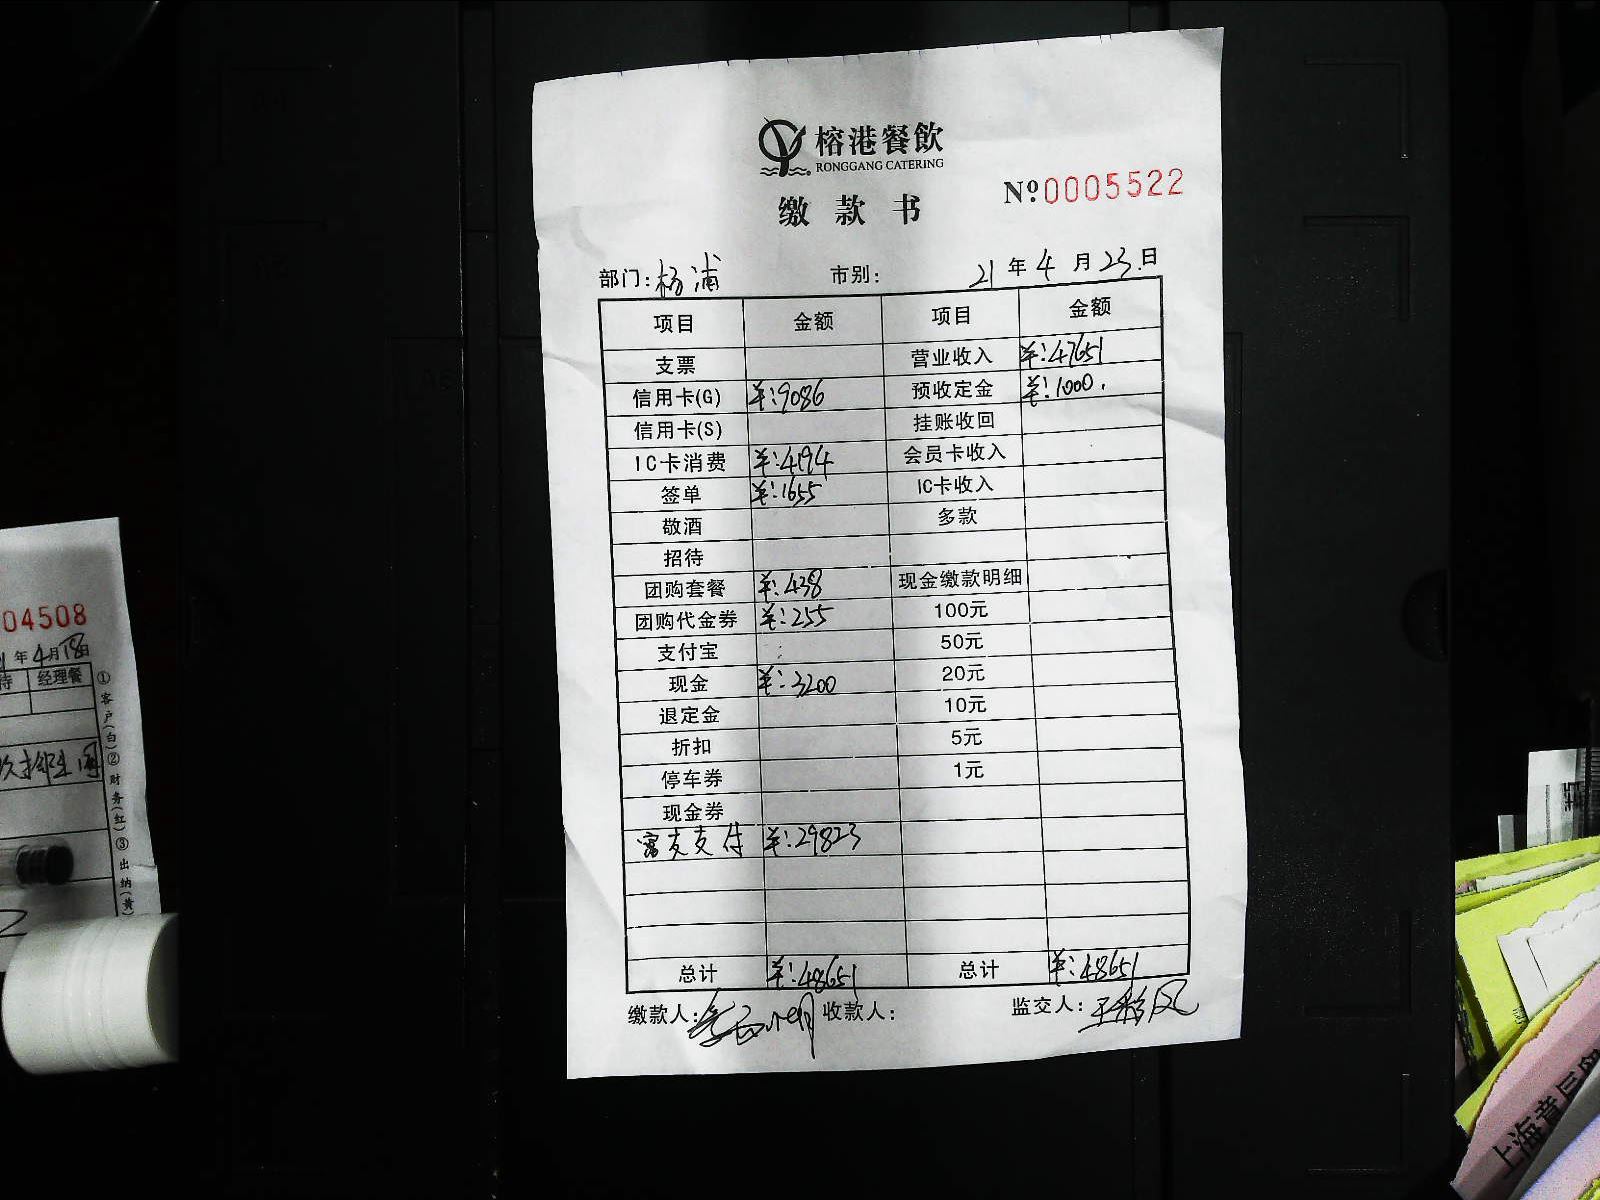 榕港餐飲
RONGGANG CATERING
缴款书
№0005522
部门:杨浦 市别: 21年4月23日
项目 金额 项目 金额
支票 营业收入 ¥:47651
信用卡(G) ¥:9086 预收定金 ¥:1000.
信用卡(S) 挂账收回
IC卡消费 ¥:4194 会员卡收入
签单 ¥:1655 IC卡收入
敬酒 多款
招待
团购套餐 ¥:438 现金缴款明细
团购代金券 ¥:255 100元
支付宝 50元
现金 ¥:3200 20元
退定金 10元
折扣 5元
停车券 1元
现金券
富友支付 ¥:29823
总计 ¥:48651 总计 ¥:48651
缴款人: 收款人: 监交人:王彩凤
04508
年4月18日
待 经理餐
①客户(白)②财务(红)③出纳(黄)
上海章